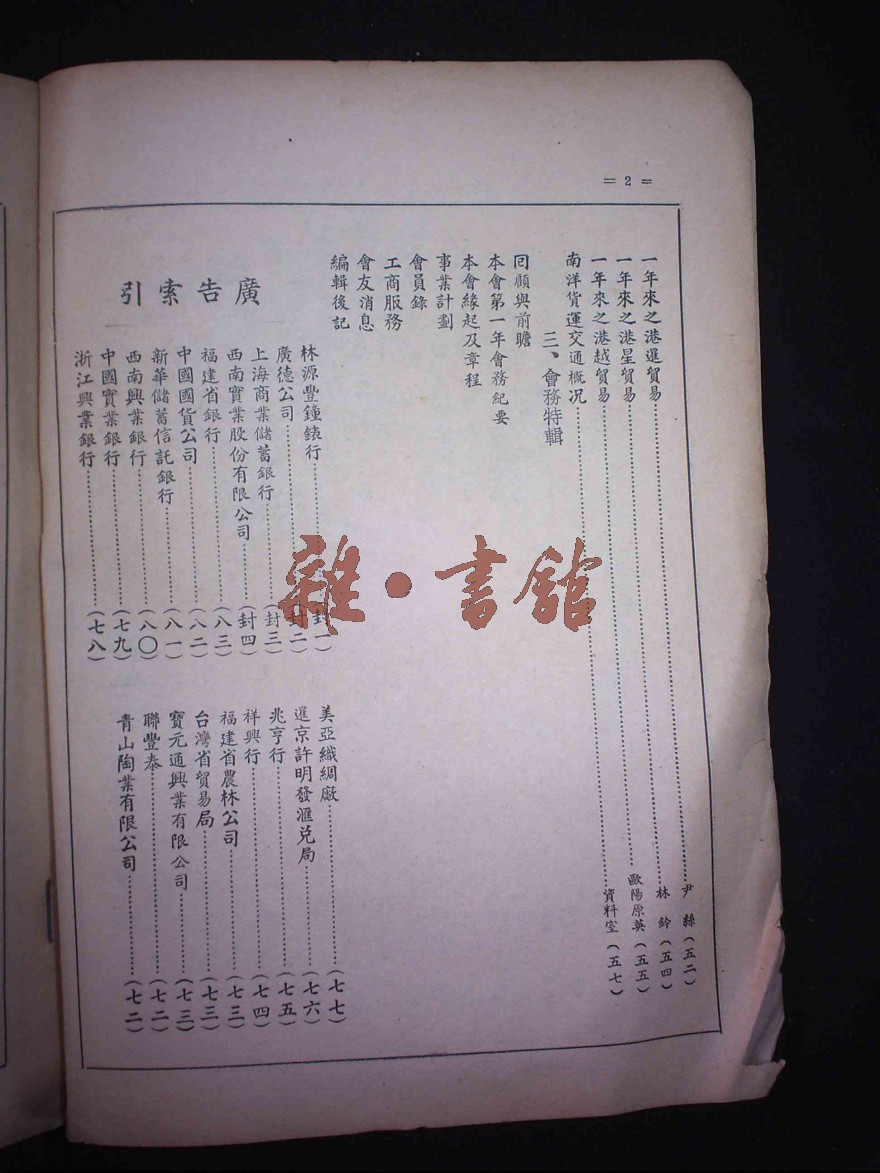 = 2 =
一年來之港暹貿易……尹 絲(五二)
一年來之港星貿易……林 鈴(五四)
一年來之港越貿易……歐陽原英(五五)
南洋貨運交通概况……資料室(五七)
三、會務特輯
回顧與前瞻
本會第一年會務紀要
本會緣起及章程
事業計劃
會員錄
工商服務
會友消息
編輯後記
廣告索引
林源豐鐘錶行……(封一)
廣德公司……(封二)
上海商業儲蓄銀行……(封三)
西南實業股份有限公司……(封四)
福建省銀行……(八三)
中國國貨公司……(八二)
新華儲蓄信託銀行……(八一)
西南興業銀行……(八〇)
中國實業銀行……(七九)
浙江興業銀行……(七八)
美亞織綢廠……(七七)
暹京許明發滙兑局……(七六)
兆亨行……(七五)
祥興行……(七四)
福建省農林公司……(七三)
台灣省貿易局……(七三)
寶元通興業有限公司……(七三)
聯豐泰……(七二)
青山陶業有限公司……(七二)
雜·書館